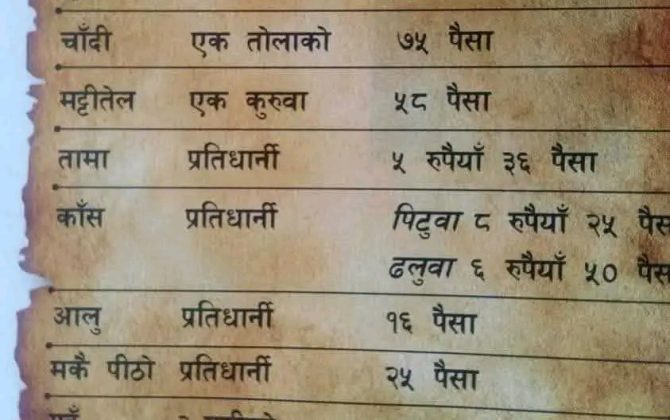 चाँदी एक तोलाको ७५ पैसा
मट्टीतेल एक कुरुवा ५८ पैसा
तामा प्रतिधार्नी ५ रुपैयाँ ३६ पैसा
काँस प्रतिधार्नी पिटुवा ८ रुपैयाँ २५ पैस
ढलुवा ६ रुपैयाँ ५० पैस
आलु प्रतिधार्नी १६ पैसा
मकै पीठो प्रतिधार्नी २५ पैसा